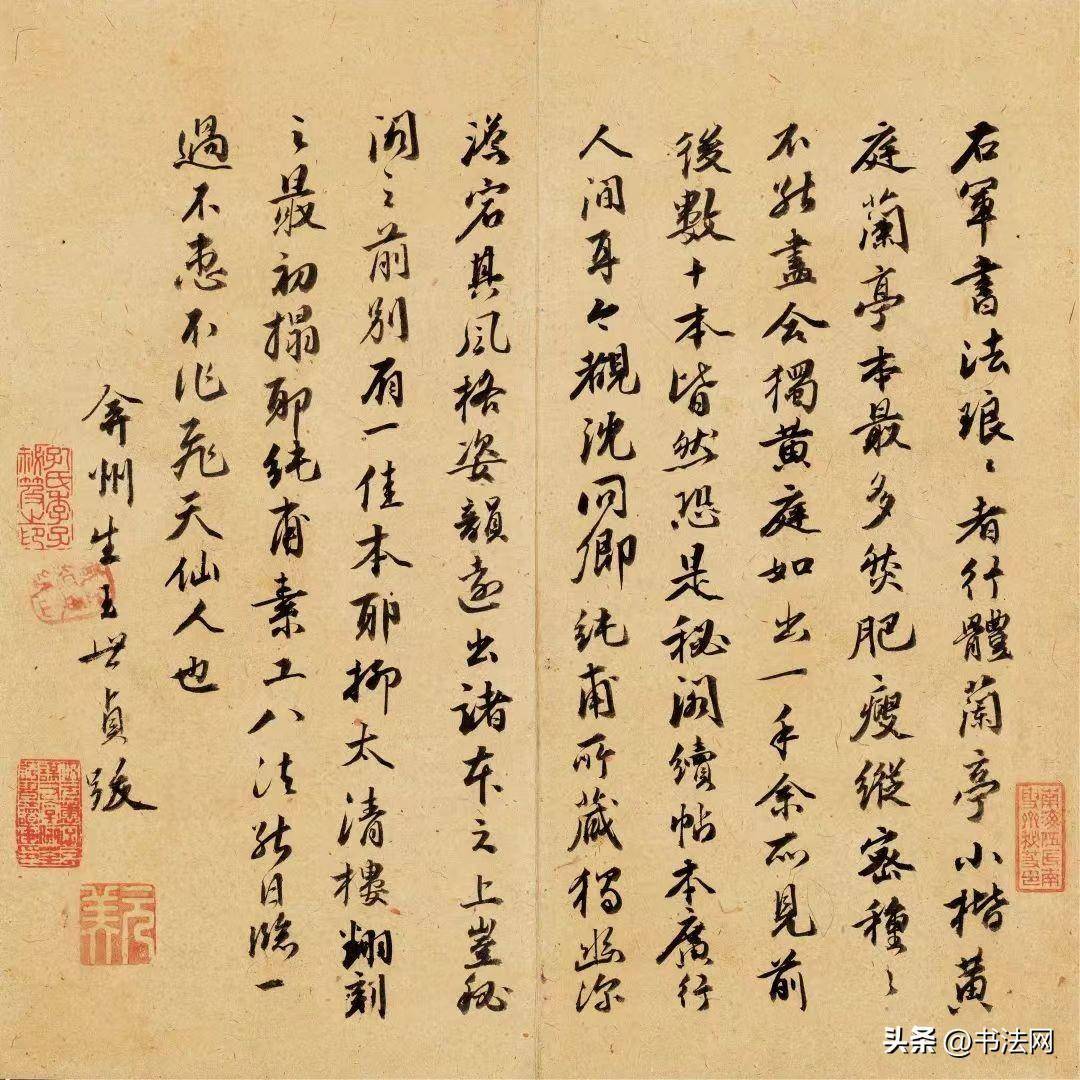 右軍書法琅々者行體蘭亭小楷黃
庭蘭亭本最多然肥瘦縱密種々
不能盡合獨黃庭如出一手余所見前
後數十本皆然恐是秘閣續帖本廣行
人間耳今觀沈同卿純甫所藏獨幽深
淡宕其風格姿韻遠出諸本之上豈秘
閣之前別有一佳本耶抑太清樓翻刻
之最初搨耶純甫素工八法能日臨一
過不患不作飛天仙人也
弇州生王世貞跋
头条 @书法网